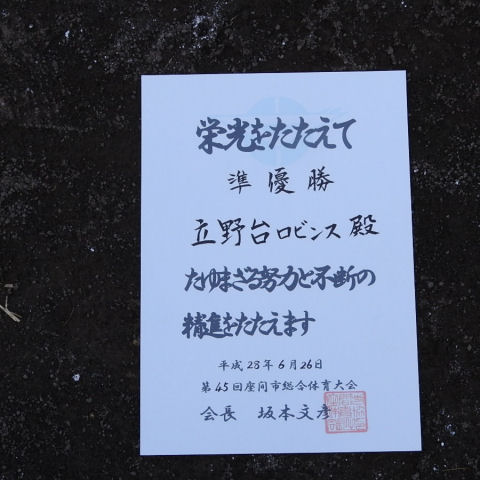 栄光をたたえて
準優勝
立野台ロビンス殿
たゆまざる努力と不断の
精進をたたえます
平成28年6月26日
第45回座間市総合体育大会
会長 坂本文彦